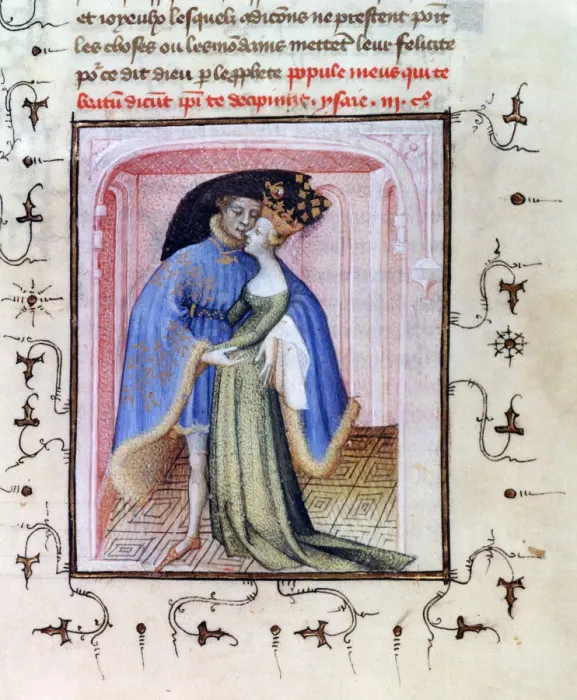 et ioyeulx lesquelz ꝯdicōns ne prestent poīt
les choses ou les mōdains mettēt leur felicite
po᷑ce dit dieu ꝑ le ꝓphete popule meus qui te
beatū dicūt ip̄i te decipiūt. ysaie. iii. cº